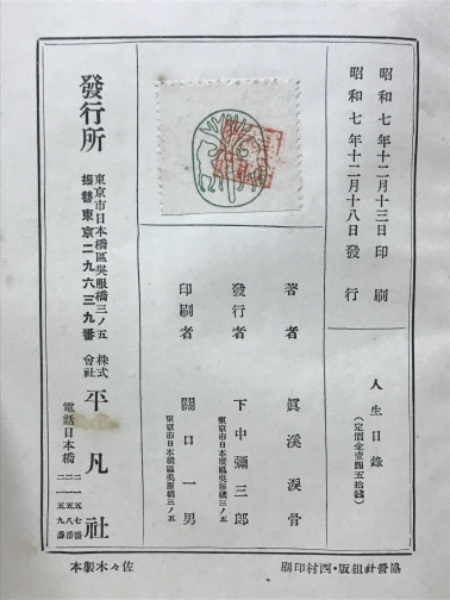 昭和七年十二月十三日印刷
昭和七年十二月十八日發行
人生目錄
(定價金壹圓五拾錢)
著者 眞溪淚骨
發行者 下中彌三郎
東京市日本橋區吳服橋三ノ五
印刷者 關口一男
東京市日本橋區吳服橋三ノ五
發行所
東京市日本橋區吳服橋三ノ五
振替東京二九六三九番
株式會社 平凡社
電話日本橋
佐々木製本
協營社組版・西村印刷